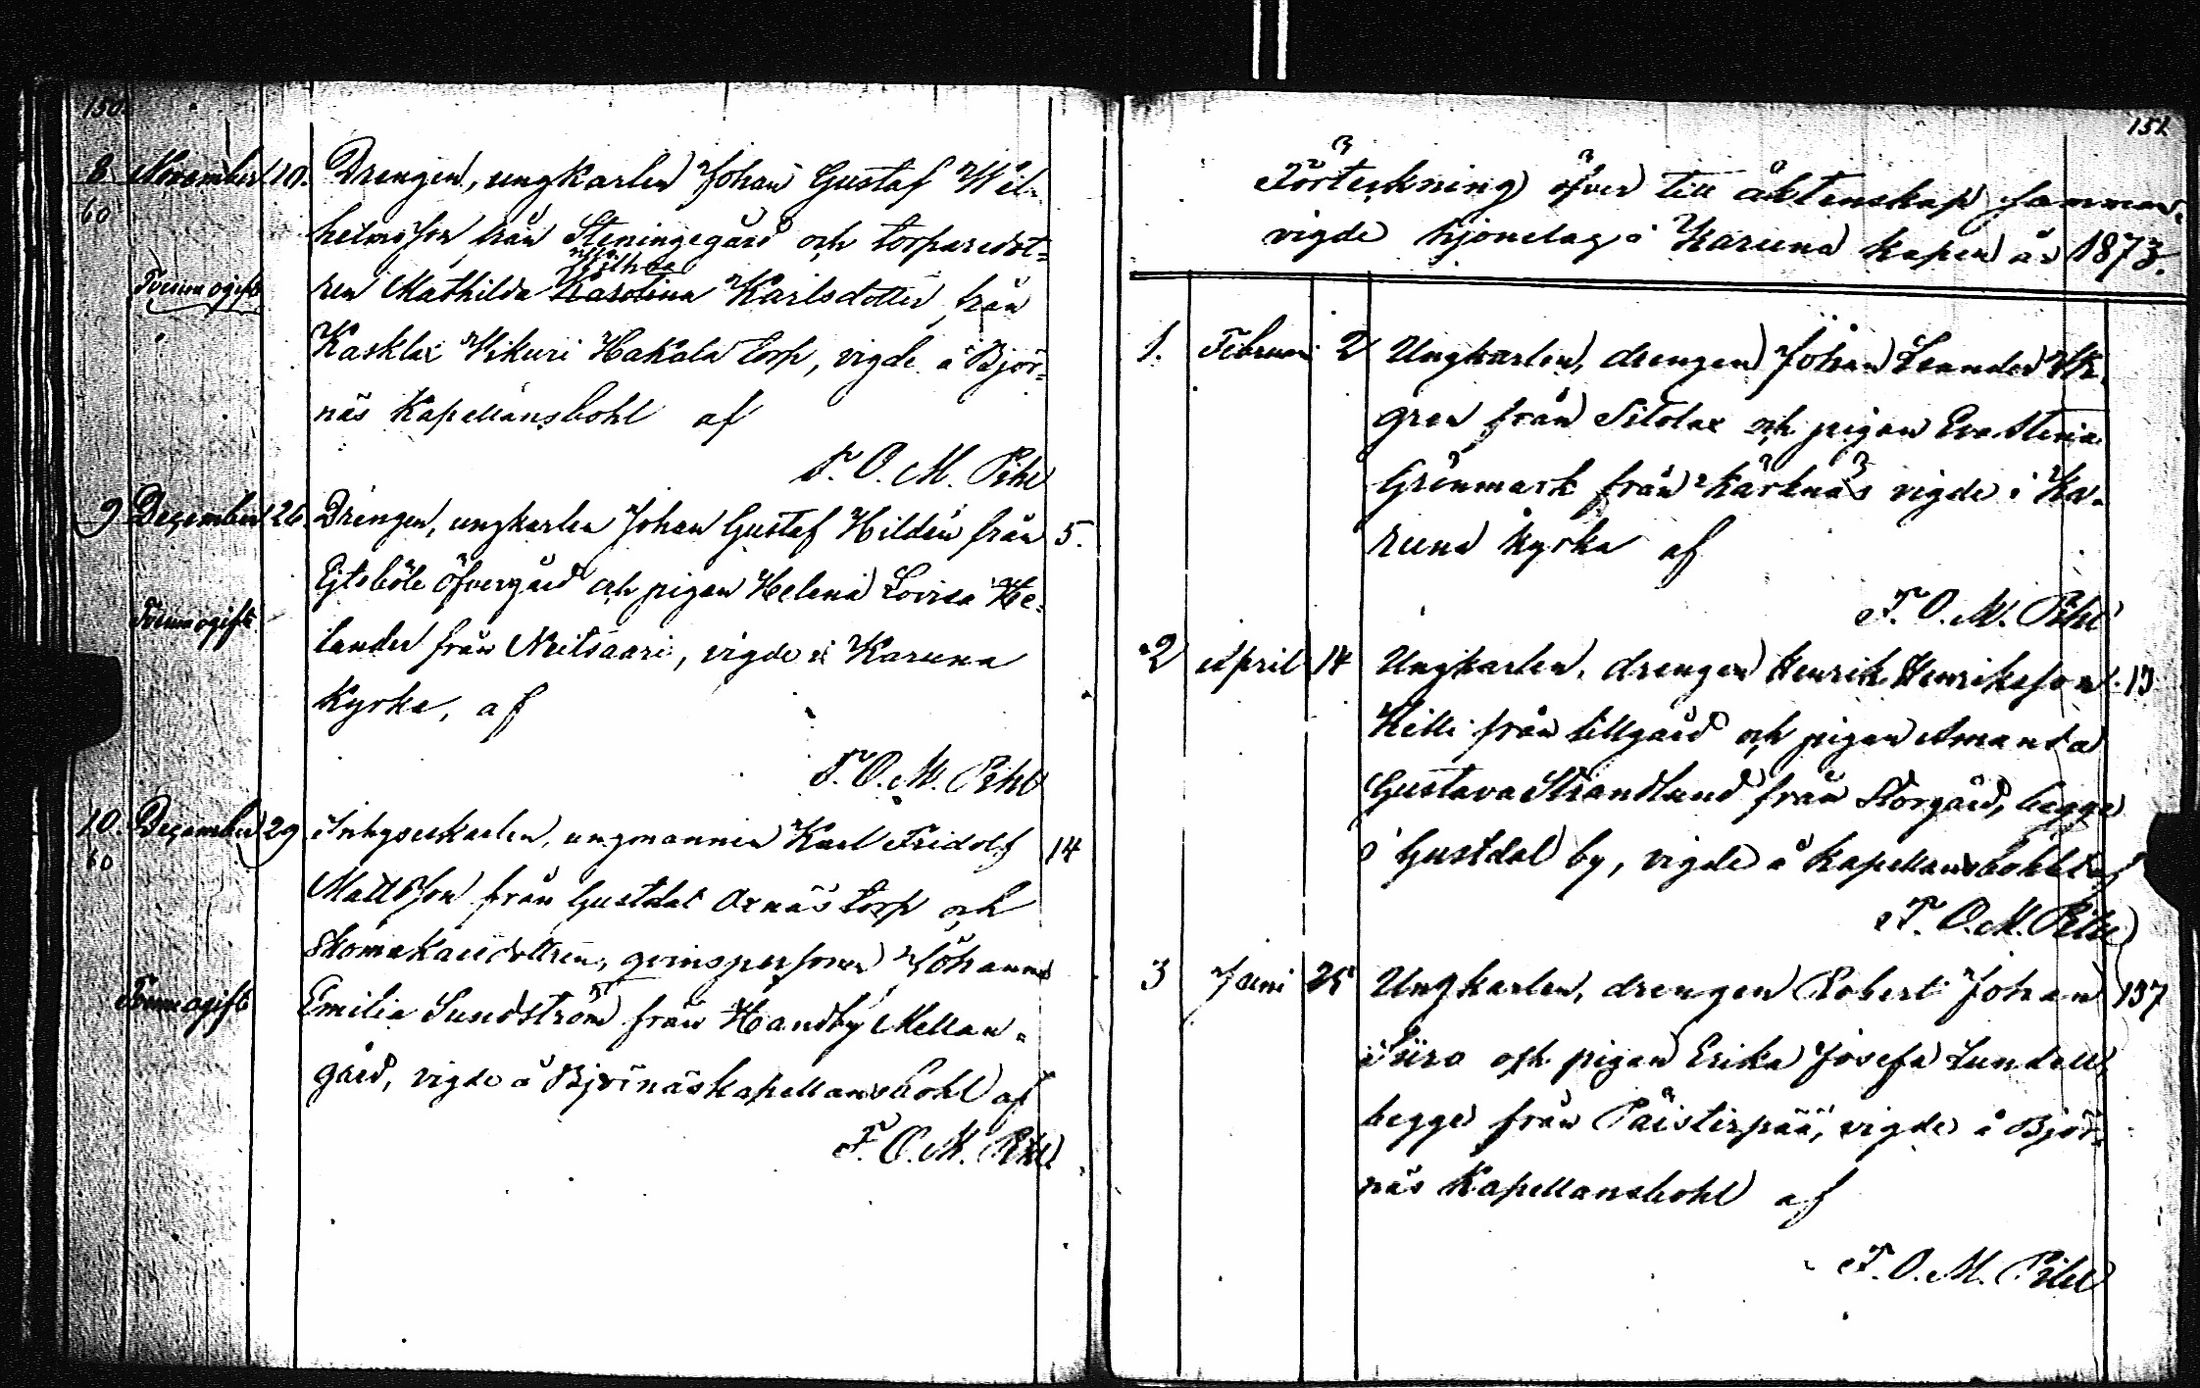 150
8 November 10. Drengen, ungkarlen Johan Gustaf Wil-
60 helmsson från Steningegård och torparedot-
Förut ogift ren Mathilda Karolina Karlsdotter, från
Kasklax Wikuri Hakala torp, vigde å Björ-
näs Kapellansbohl af
F. O. M. Pihl
9 December 26. Drengen, ungkarlen Johan Gustaf Hildén från 5.
Öfvergård och pigan Helena Lovisa He-
Förut ogift lander från Neitsaari, vigde i Karuna
Kyrka, af
F. O. M. Pihl
10. December 29 Inhyseskarlen, ungmannen Karl Fridolf 14
60 Mattsson från Gustdal Axnäs torp och
Skomakaredottren, qvinspersonen Johanna
Förut ogift Emilia Sundström från Handby Mellan-
gård, vigde å Björnäs kapellansbohl af
F. O. M. Pihl
151
Förteckning öfver till äktenskap samman-
vigde hjonelag i Karuna kapell år 1873.
1. Februari 2 Ungkarlen, drengen Johan Leander
gren från Sitolax och pigan Eva Stina
Grönmark från Kärknäs vigde i Ka-
runa kyrka af
F. O. M. Pihl
2 April 14 Ungkarlen, drengen Henrik Henriksson 13
Killi från Lillgård och pigan Amanda
Gustava Strandlund från Storgård, begge
i Gustdal by, vigde å Kapellansbohlet af
F. O. M. Pihl
3 Juni 25 Ungkarlen, drengen Robert Johan 137
och pigan Erika Josefa Lundell
begge från Päistärpää, vigde å Björ-
näs Kapellansbohl af
F. O. M. Pihl